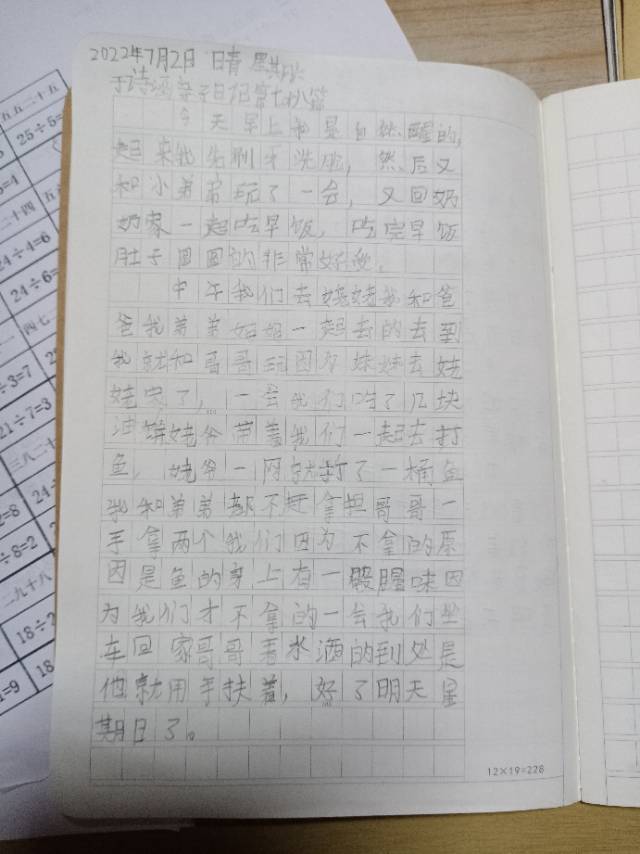 2022年7月2日 晴 星期六
于诗涵亲子日记第七八篇
今天早上我是自然醒的,
起来我先刷牙洗脸,然后又
和小弟弟玩了一会,又回奶
奶家一起吃早饭,吃完早饭
肚子圆圆的非常好爽。
中午我们去姥姥我和爸
爸我弟弟姐姐一起去的去到
我就和哥哥玩因为妹妹去姥
姥家了,一会我们吃了几块
油饼姥爷带着我们一起去打
鱼,姥爷一网就打了一桶鱼
我和弟弟都不赶拿担哥哥一
手拿两个我们因为不拿的原
因是鱼的身上有一股腥味因
为我们才不拿的一会我们坐
车回家哥哥看水洒的到处是
他就用手扶着,好了明天星
期日了。
12×19=228
五五二十五
25÷5=
二十四
24÷4=6
24÷6=
四七二
÷3=7
21÷7=3
三八二十
2=8
24÷
÷8=2
二九十八
18÷2
=9
18